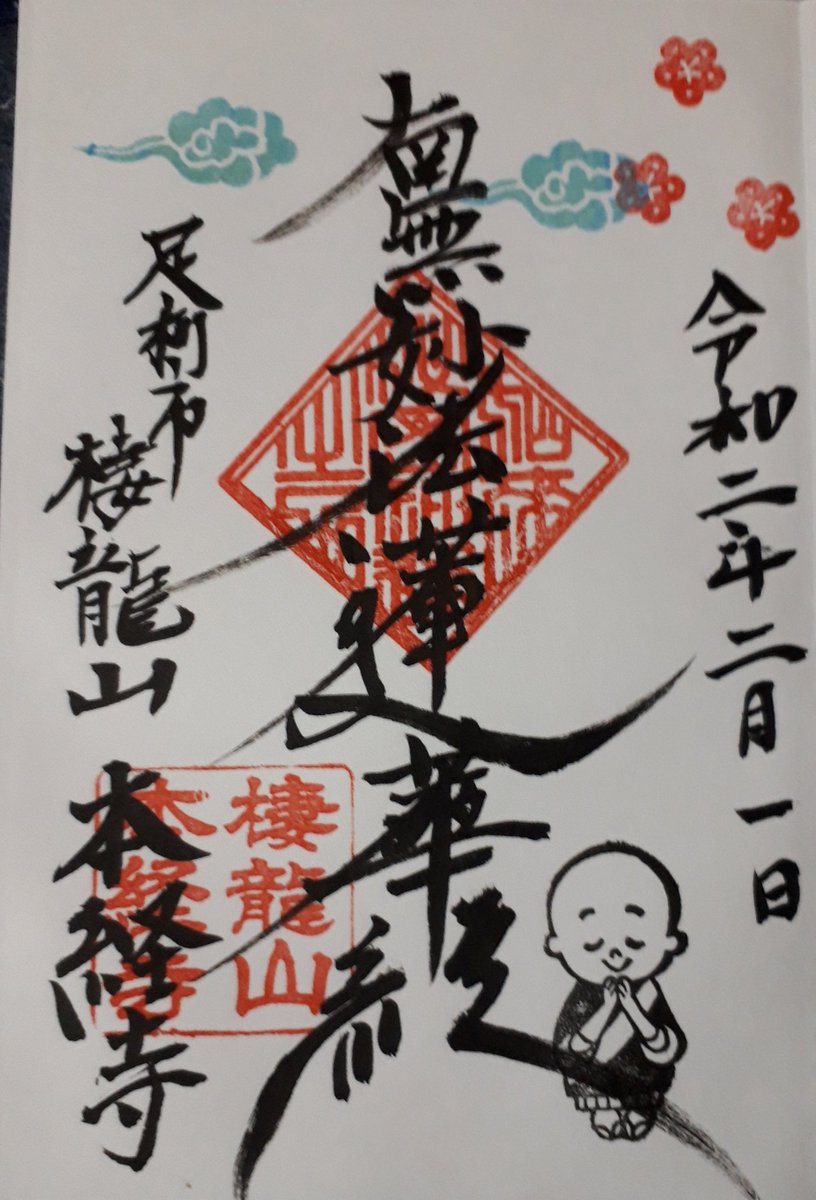 令和二年二月一日
南無妙法蓮華経
足利市
棲龍山
本経寺
棲龍山
本経寺